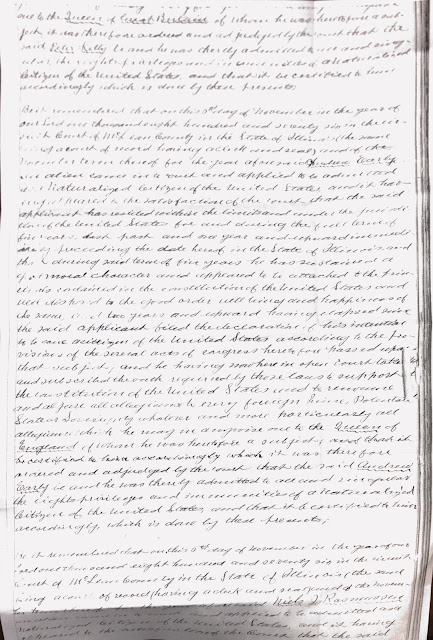 ance to the Queen of Great Britain of whom he was heretofore a sub-
ject it was therefore ordered and adjudged by the court that the
said Peter Kelly be and he was thereby admitted to all and sing-
ular the rights privileges and immunities of a naturalized
Citizen of the United States, and that it be certified to him
accordingly which is done by these presents
Be it remembered that on this 3d day of November in the year of
our Lord one thousand eight hundred and seventy six in the cir-
cuit Court of McLean County in the State of Illinois (the same
being a court of record having a clerk and seal) and of the
November term thereof for the year aforesaid Andrew Early
an alien came into court and applied to be admitted
a Naturalized Citizen of the United States and it hav-
ing appeared to the satisfaction of the court that the said
applicant has resided within the limits and under the jurisdic-
tion of the United States for and during the full term of
five years last past and one year and upward immedi-
ately preceding the date hereof in the State of Illinois and
that during said term of five years he has sustained a
good moral character and appeared to be attached to the prin-
ciples contained in the constitution of the United States and
well disposed to the good order well being and happiness of
the same and two years and upward having elapsed since
the said applicant filed the declaration of his intention
to become a citizen of the United States according to the pro-
visions of the several acts of congress heretofore passed upon
that subject, and he having now here in open Court taken
and subscribed the oath required by those laws to support
the constitution of the United States and to renounce
and abjure all allegiance to every foreign Prince, Potentate
State or Sovereignty whatever and more particularly all
allegiance which he may in anywise owe to the Queen of
England of whom he was heretofore a subject, and that it
be certified to him accordingly which it was therefore
ordered and adjudged by the court that the said Andrew
Early be and he was thereby admitted to all and singular
the rights privileges and immunities of a naturalized
Citizen of the United States, and that it be certified to him
accordingly, which is done by these presents;
Be it remembered that on this 3d day of November in the year of our
Lord one thousand eight hundred and seventy six in the circuit
Court of McLean County in the State of Illinois (the same
being a court of record having a clerk and seal) and of the Novem-
Niels J. Rasmussen
applied to be admitted a
Naturalized Citizen of the United States, and it having
appeared to the satisfaction of the Court that the said